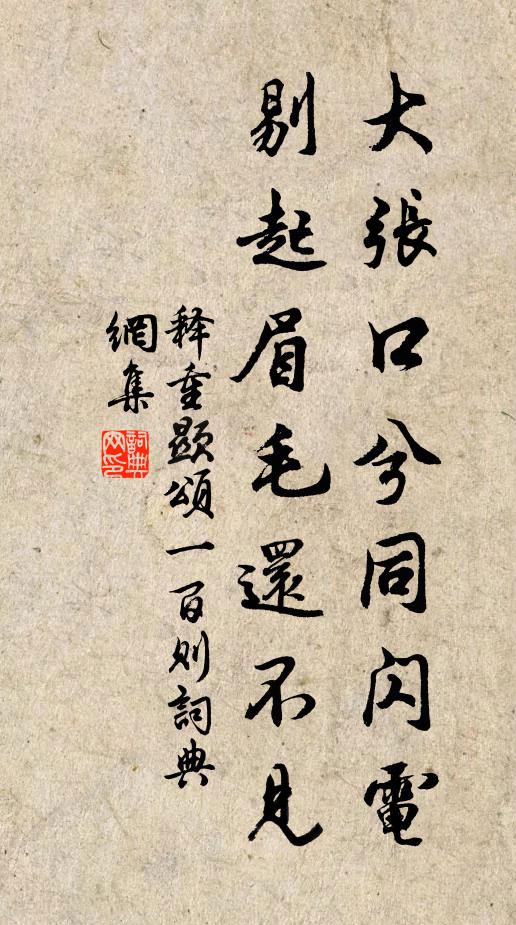 大張口兮同閃電
剔起眉毛還不見
释重顯頌一百则詞典
網集
詞典
网印